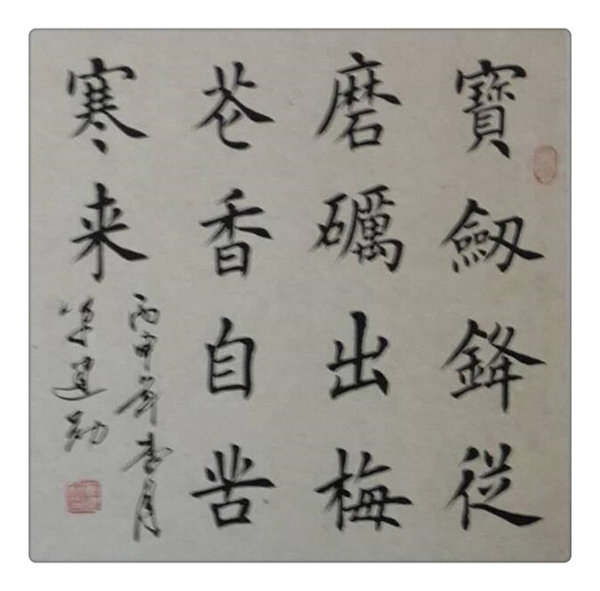 寶劔鋒從
磨礪出梅
花香自苦
寒来
丙申年杏月
建勛